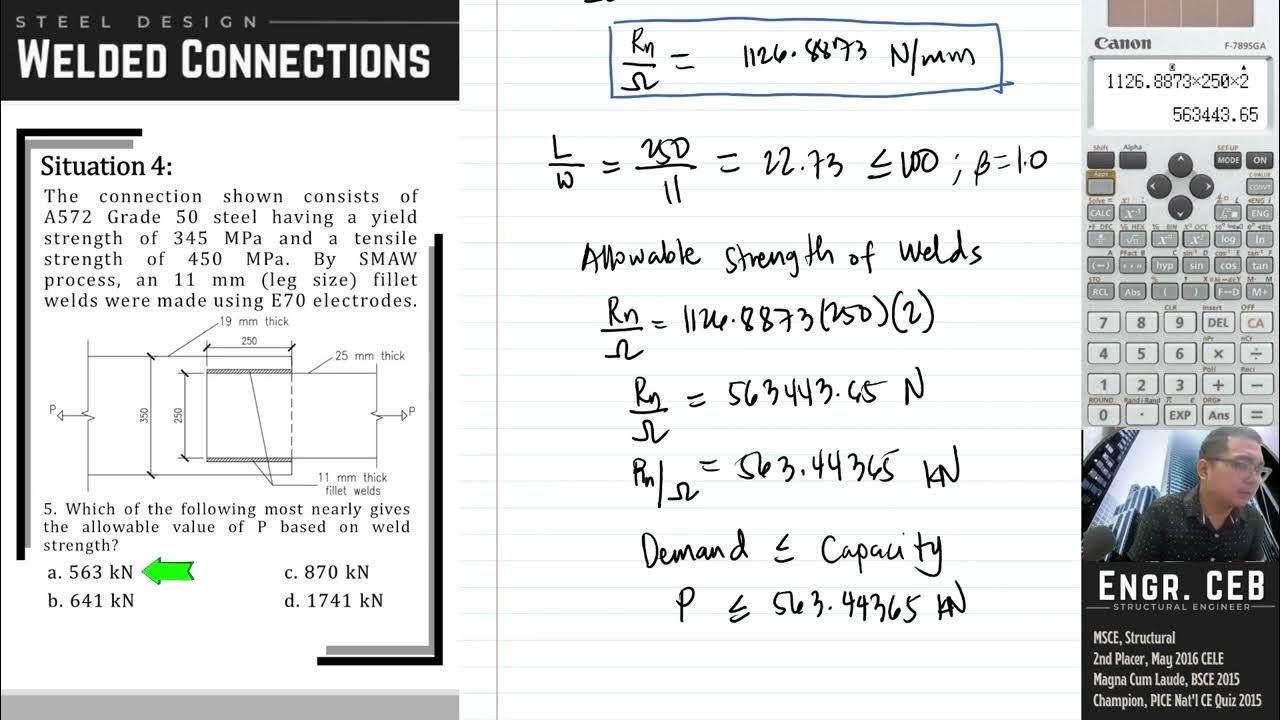 STEEL DESIGN
WELDED CONNECTIONS
Situation 4:
The connection shown consists of
A572 Grade 50 steel having a yield
strength of 345 MPa and a tensile
strength of 450 MPa. By SMAW
process, an 11 mm (leg size) fillet
welds were made using E70 electrodes.
19 mm thick
250
25 mm thick
P
350
250
P
11 mm thick
fillet welds
5. Which of the following most nearly gives
the allowable value of P based on weld
strength?
a. 563 kN
c. 870 kN
b. 641 kN
d. 1741 kN
Rn/Ω = 1126.8873 N/mm
L/w = 250/11 = 22.73 ≤ 100 ; β=1.0
Allowable Strength of Welds
Rn/Ω = 1126.8873(250)(2)
Rn/Ω = 563443.65 N
Rn/Ω = 563.44365 kN
Demand ≤ Capacity
P ≤ 563.44365 kN
Canon
F-789SGA
1126.8873×250×2
563443.65
Shift
Alpha
SET-UP
MODE
ON
Apps
CALC
ENG
log
ln
hyp
sin
cos
tan
STO
RCL
Abs
(
)
F↔D
M+
7
8
9
DEL
CA
4
5
6
×
÷
1
2
3
+
−
0
·
EXP
Ans
=
ENGR. CEB
STRUCTURAL ENGINEER
MSCE, Structural
2nd Placer, May 2016 CELE
Magna Cum Laude, BSCE 2015
Champion, PICE Nat'l CE Quiz 2015